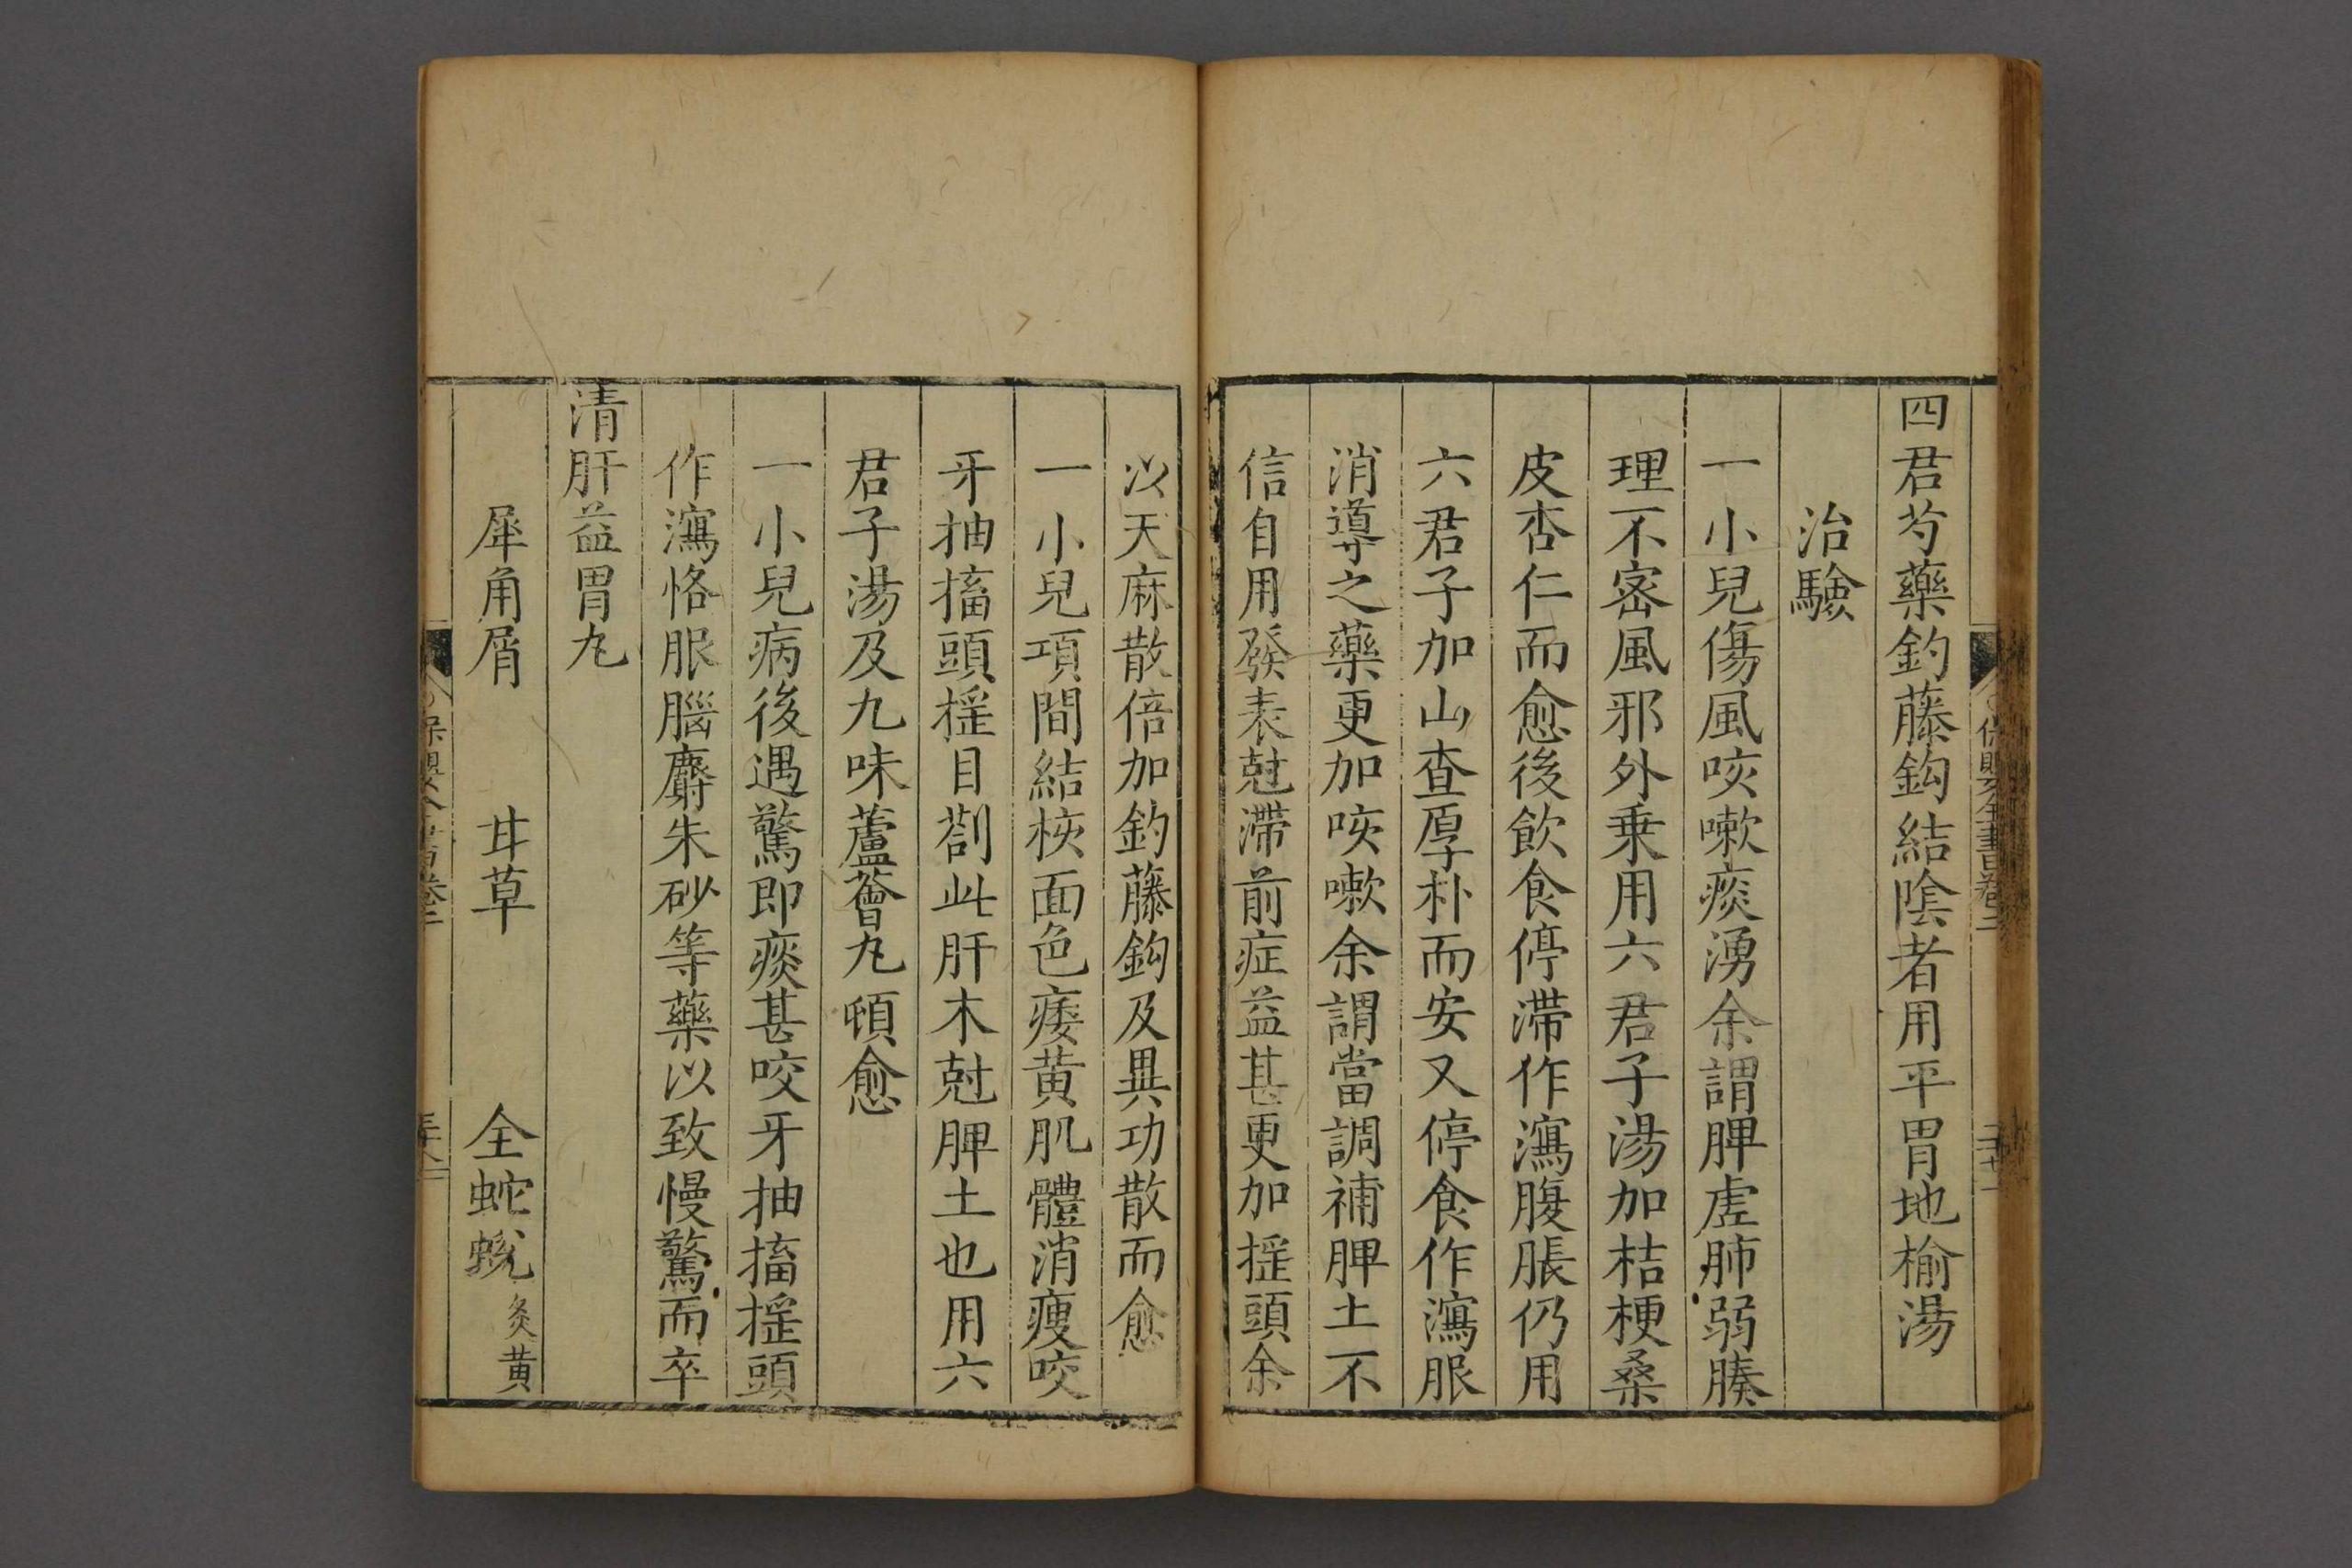 四君芍藥鈞藤鈎結陰者用平胃地榆湯
治驗
一小兒傷風咳嗽痰湧余謂脾虛肺弱腠
理不密風邪外乗用六君子湯加桔梗桑
皮杏仁而愈後飲食停滯作瀉腹脹仍用
六君子加山查厚朴而安又停食作瀉服
消導之藥更加咳嗽余謂當調補脾土不
信自用發表尅滯前症益甚更加揺頭余
以天麻散倍加釣藤鈎及異功散而愈
一小兒項間結核面色痿黄肌體消瘦咬
牙抽搐頭揺目劄此肝木尅脾土也用六
君子湯及九味蘆薈丸頓愈
一小兒病後遇驚即痰甚咬牙抽搐揺頭
作瀉恪服腦麝朱砂等藥以致慢驚而卒
清肝益胃丸
犀角屑 甘草 全蛇蛻炙黄